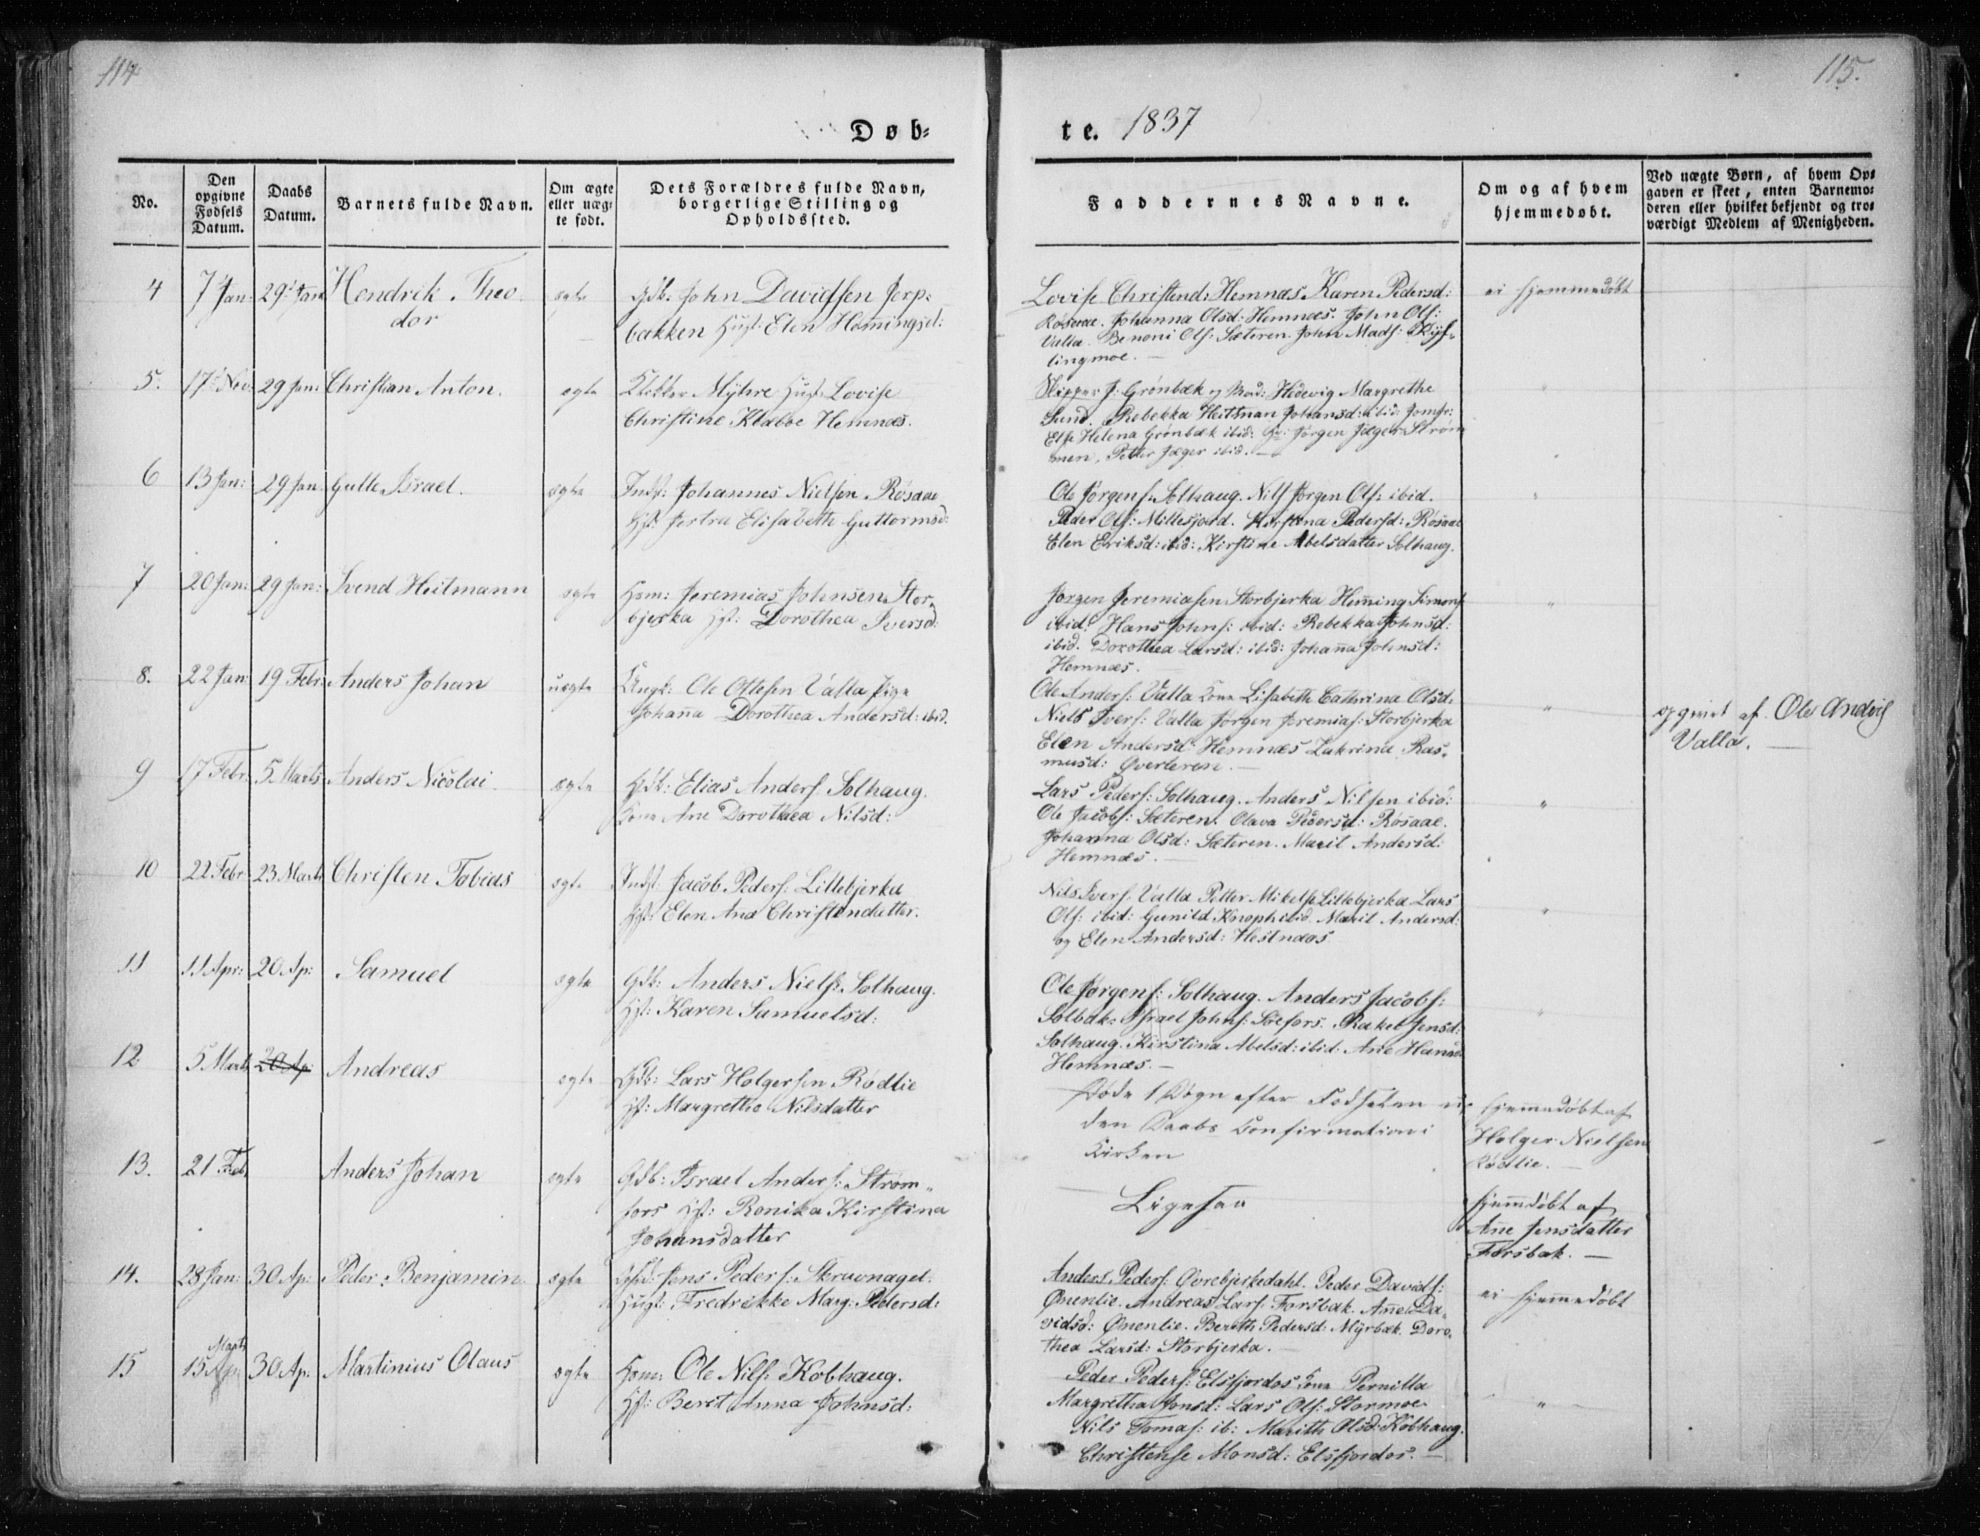 114
115.
Døb-
te. 1837
No.
Den opgivne Fødsels Datum.
Daabs Datum.
Barnets fulde Navn.
Om ægte eller uægte født.
Dets Forældres fulde Navn, borgerlige Stilling og Opholdssted.
Faddernes Navne.
Om og af hvem hjemmedøbt.
Ved uægte Børn, af hvem Opgaven er skeet, enten Barnemoderen eller hvilket bekjendt og troværdigt Medlem af Menigheden.
4 7 Jan: 29 Jan Hendrik Theo-
dor
ægte
Gdb. John Davidsen Jerp-
bakken Hust: Elen Hemingsd:
Lovise Christend: Hemnæs. Karen Pedersd:
Røsaae. Johanna Olsd: Hemnæs. John Ols:
Valla. Benoni Ols: Sæteren. John Mads:
lingmoe. —
ei hjemmedøbt
5. 17 Nov: 29 Jan: Christian Anton.
ægte
Klokker Myhre Hust: Lovise
Christine Klæboe Hemnæs.
Skipper J: Grønbæk og Mad: Hedevig Margrethe
Sund. Rebekka Heitman Johansd: ibid: Jomfr:
Else Helena Grønbæk ibid: Jørgen Jæger Strøm
men. Petter Jæger ibid. —
"
6 13 Jan: 29 Jan Gulle Israel.
ægte
Indst: Johannes Nielsen Røsaae
Hst: Elisabeth Guttormsd:
Ole Jørgens: Solhaug. Nils Jørgen Ols: ibid.
Peder Ols: Millesjord. Kirstina Pedersd: Røsaae
Elen Eriksd: ibid: Kirstine Abelsdatter Solhaug.
"
7 20 Jan: 29 Jan: Svend Heitmann
ægte
Hsm: Jeremias Johnsen Stor-
bjerka Hst: Dorothea Iversd:
Jørgen Jeremiasen Storbjerka Heming Simons
ibid: Hans Johns: ibid: Rebekka Johnsd:
ibid. Dorothea Larsd: ibid: Johana Johnsd:
Hemnæs.
"
8. 22 Jan: 19 Febr: Anders Johan
uægte
Ungk: Ole Olsen Valla Pige
Johana Dorothea Andersd: ibid.
Ole Anders: Valla Kone Lisabeth Cathrina Olsd:
Niels Ivers: Valla Jørgen Jeremias: Storbjerka
Elen Andersd: Hemnæs Ras-
musd: Øverleren. —
"
opgivet af. Ole
Valla. —
9 17 Febr: 5 Marts Anders Nicolai.
ægte
Gdb: Elias Anders: Solhaug.
Kone Ane Dorothea Nilsd:
Lars Peders: Solhaug. Anders Nilsen ibid:
Ole Jacobs: Sæteren. Olava Pedersd: Røsaae.
Johanna Olsd: Sæteren. Maril Andersd:
Hemnæs. —
"
10 22 Febr 23 Marts Christen Tobias
ægte
Indst: Jacob Peders: Lillebjerka
Hst: Elen Ana Christendatter.
Nils Ivers: Valla Petter Mikels: Lillebjerka Lars
Ols: ibid: Gunild Knoph ibid. Maril Andersd:
og Elen Andersd: Hestnæs
"
11 11 Apr: 20 Ap: Samuel
ægte
Gdb: Anders Niels: Solhaug.
Hst: Karen Samuelsd:
Ole Jørgens: Solhaug. Anders Jacobs:
Solbak: Israel Johns: Rakel Jensd:
Solhaug. Kirstina Abelsd: ibid: Ane Hansd:
Hemnæs. —
"
12 5 Marts 20 Ap: Andreas
ægte
Gdb: Lars Holgersen Rødlie
Hst: Margrethe Nilsdatter
Døde 1 Døgn efter Fødselen u-
den Daabs Confirmation i
Kirken
hjemmedøbt af
Holger Nielsen
Rødlie. —
13. 21 Feb Anders Johan
ægte
Gdb: Israel Anders: Strøm-
fors Hst: Ronika Kirstina
Johansdatter
Ligesaa
hjemmedøbt af
Ane Jensdatter
Forsbak. —
14. 28 Jan: 30 Ap: Peder Benjamin
ægte
Jens Peders: Skruvnaget:
Hust: Fredrikke Marg: Pedersd:
Anders Peders: Øvrebjerkedahl. Peder Davids:
Ønenlie. Andreas Lars: Forsbak. Ane Da-
vidsd: Ønenlie. Bereth Pedersd: Myrbæk. Doro-
thea Larsd: Storbjerka. —
ei hjemmedøbt
15 15 Marts 30 Ap: Martinius Olaus
ægte
Hsm: Ole Nils: Kobhaug.
Hst: Beret Anna Johnsd:
Peder Peders: Elsfjordos Kone Pernilla
Margretha Jonsd: Lars Ols: Stormoe
Nils Tomas: ib: Marith Olsd: Kobhaug.
Christense Monsd: Elsfjordos. —
"